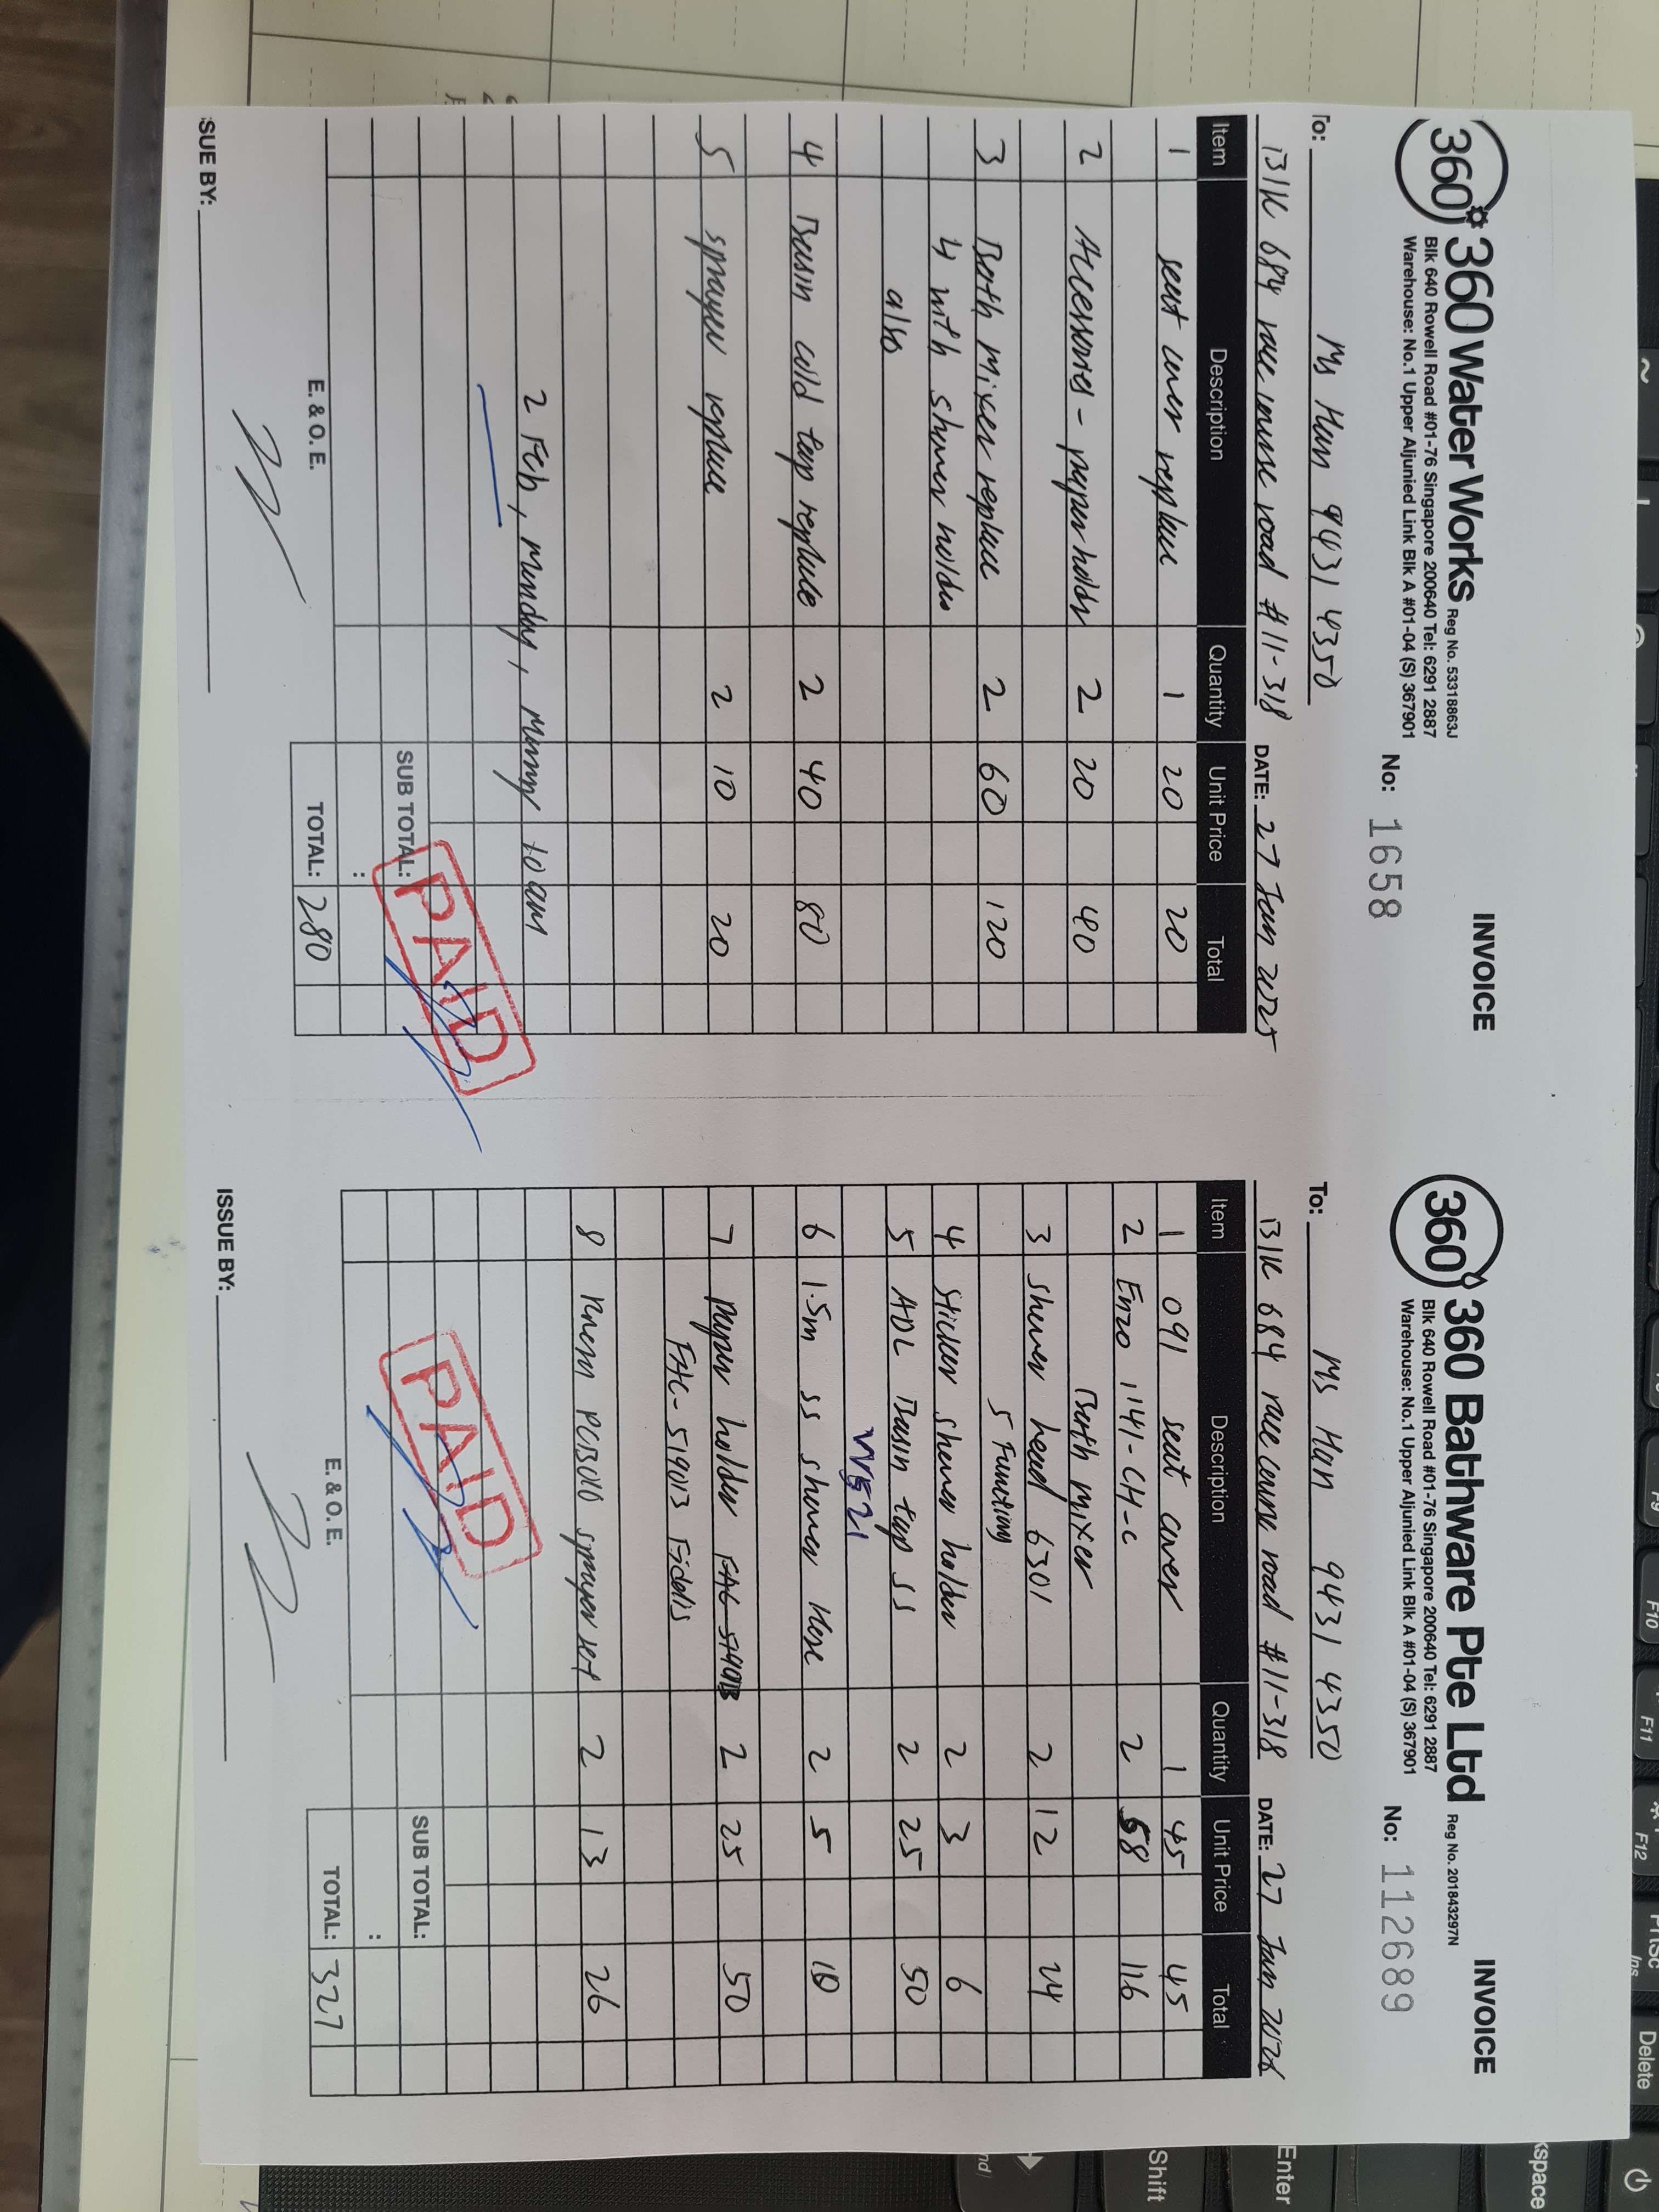 360° 360 Water Works Reg No. 53318863J
INVOICE
Blk 640 Rowell Road #01-76 Singapore 200640 Tel: 6291 2887
Warehouse: No.1 Upper Aljunied Link Blk A #01-04 (S) 367901
No: 1658
To: Ms Han 9431 4350
Blk 684 race course road #11-318 DATE: 27 Jan 2025
Item Description Quantity Unit Price Total
1 seat cover replace 1 20 20
2 Accessories - paper holder 2 20 40
3 Bath Mixer replace 2 60 120
4 with shower holder
also
4 Basin cold tap replace 2 40 80
5 sprayer replace 2 10 20
2 Feb, Monday, 10 am
SUB TOTAL:
:
PAID
E. & O. E. TOTAL: 280
SUE BY:
360° 360 Bathware Pte Ltd Reg No. 201843297N
INVOICE
Blk 640 Rowell Road #01-76 Singapore 200640 Tel: 6291 2887
Warehouse: No.1 Upper Aljunied Link Blk A #01-04 (S) 367901
No: 112689
To: Ms Han 9431 4350
Blk 684 race course road #11-318 DATE: 27 Jan 2026
Item Description Quantity Unit Price Total
1 091 seat cover 1 45 45
2 Enzo 1141-CH-C 2 58 116
Bath mixer
3 Shower head 6301 2 12 24
5 Function
4 Sticker shower holder 2 3 6
5 ADL Basin tap SS 2 25 50
6 1.5m SS shower Hose 2 5 10
7 paper holder 2 25 50
FAC-519013 Fidelis
8 PCB010 sprayer set 2 13 26
SUB TOTAL:
:
PAID
E. & O. E. TOTAL: 327
ISSUE BY:
F9
F10
F11
F12
PrtSc
Ins
Delete
kspace
Enter
Shift